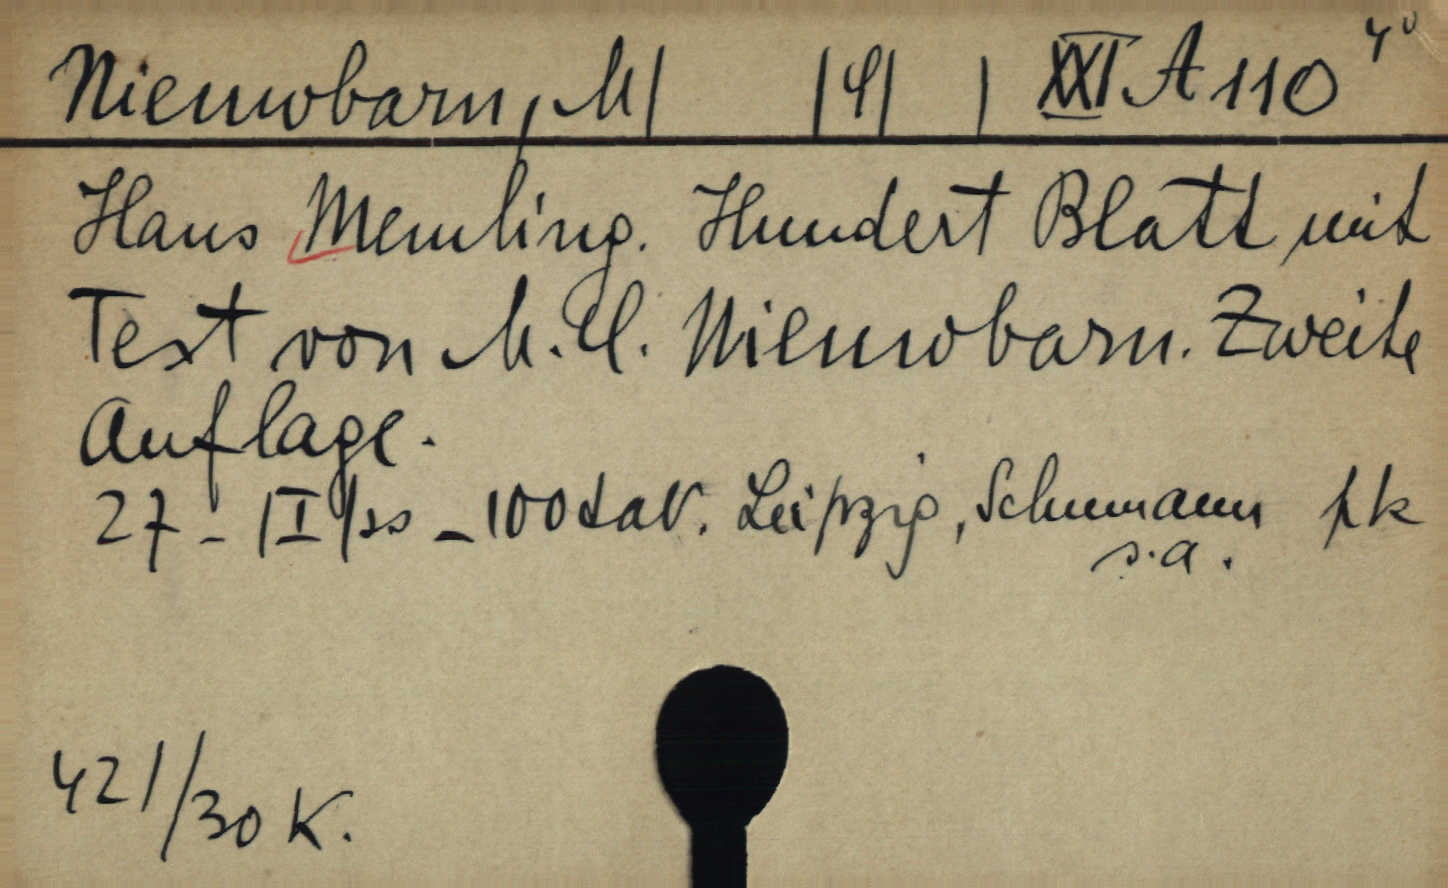 Nieuwbarn, M| |C| | XXI A 110 4°
Hans Memling. Hundert Blatt mit
Text von M. C. Nieuwbarn. Zweite
Auflage.
27 - |I|ss - 100 tav. Leipzig, Schumann pk
s.a.
421/30 K.